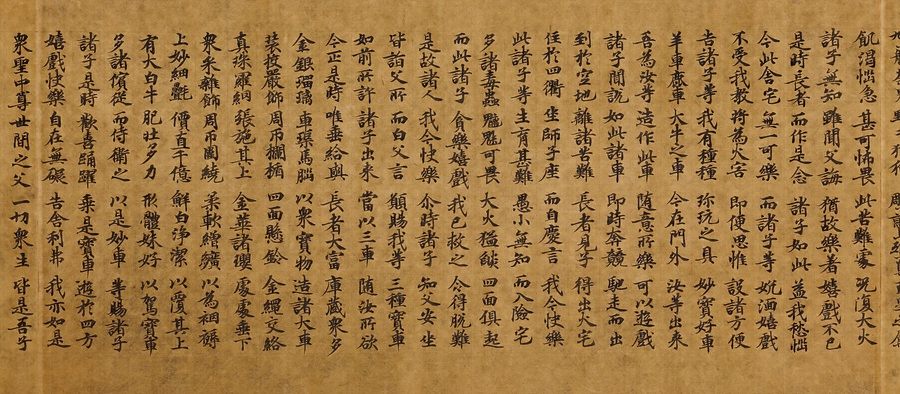 飢渴惱急 甚可怖畏 此苦難處 況復大火
諸子無知 雖聞父誨 猶故樂著 嬉戲不已
是時長者 而作是念 諸子如此 益我愁惱
今此舍宅 無一可樂 而諸子等 妉湎嬉戲
不受我教 將為火害 即便思惟 設諸方便
告諸子等 我有種種 弥玩之具 妙寶好車
羊車鹿車 大牛之車 今在門外 汝等出来
吾為汝等 造作此車 随意所樂 可以遊戲
諸子聞說 如此諸車 即時奔競 馳走而出
到於空地 離諸苦難 長者見子 得出火宅
住於四衢 坐師子座 而自慶言 我今快樂
此諸子等 生育甚難 愚小無知 而入險宅
多諸毒蟲 魑魅可畏 大火猛焰 四面俱起
而此諸子 貪樂嬉戲 我已救之 令得脫難
是故諸人 我今快樂 尒時諸子 知父安坐
皆詣父所 而白父言 願賜我等 三種寶車
如前所許 諸子出来 當以三車 随汝所欲
今正是時 唯垂給與 長者大富 庫藏衆多
金銀瑠璃 車璖馬腦 以衆寶物 造諸大車
裝挍嚴飾 周帀欄楯 四面懸鈴 金繩交絡
真珠羅網 張施其上 金華諸瓔 處處垂下
衆采雜飾 周帀圍繞 柔軟繒纊 以為裀褥
上妙細㲲 價直千億 鮮白淨潔 以覆其上
有大白牛 肥壯多力 形體姝好 以駕寶車
多諸儐從 而侍衛之 以是妙車 等賜諸子
諸子是時 歡喜踊躍 乘是寶車 遊於四方
嬉戲快樂 自在無礙 告舍利弗 我亦如是
衆聖中尊 世間之父 一切衆生 皆是吾子